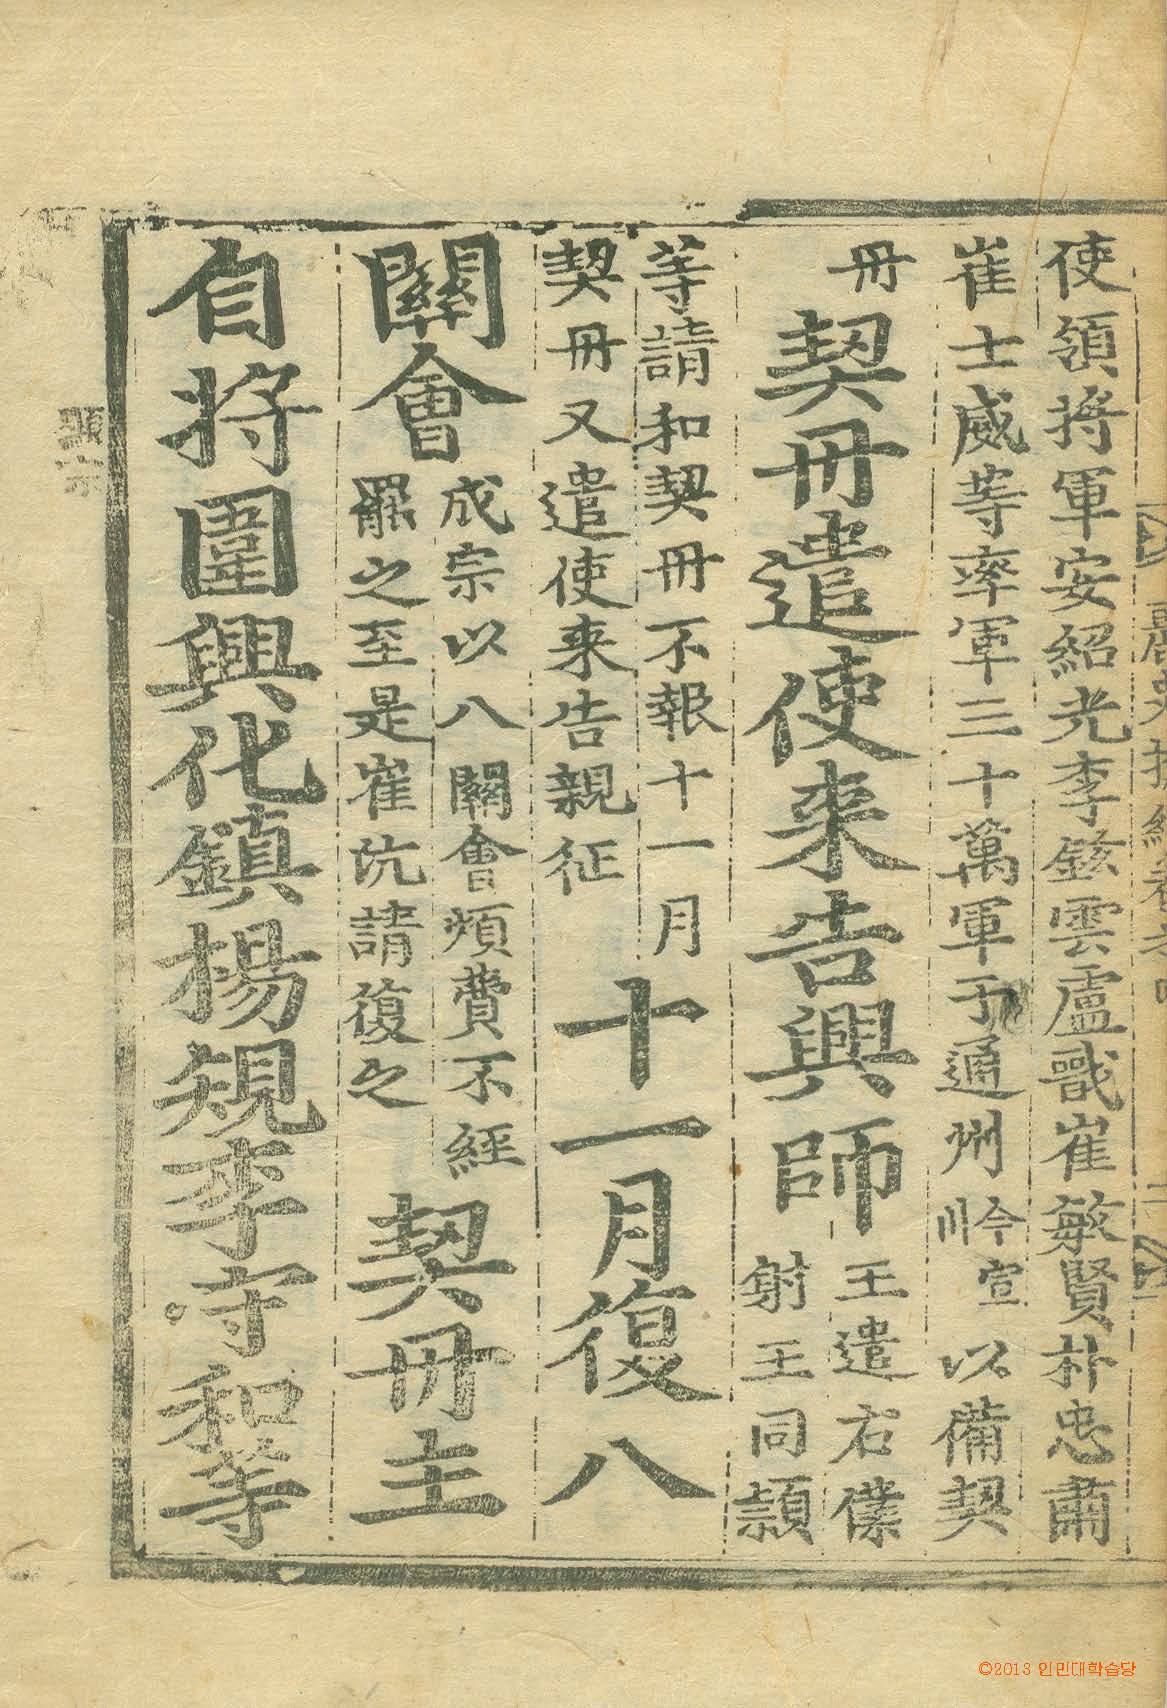 使領將軍安紹光李鉉雲盧戩崔敏賢朴忠肅
崔士威等率軍三十萬軍于通州今宣川以備契
丹
契丹遣使來告興師
王遣右僕
射王同穎
等請和契丹不報十一月
契丹又遣使来告親征
十一月復八
關會
成宗以八關會煩費不經
罷之至是崔沆請復之
契丹主
自將圍興化鎮楊規李守和等
顯宗
麗史提綱卷之四
©2013 인민대학습당